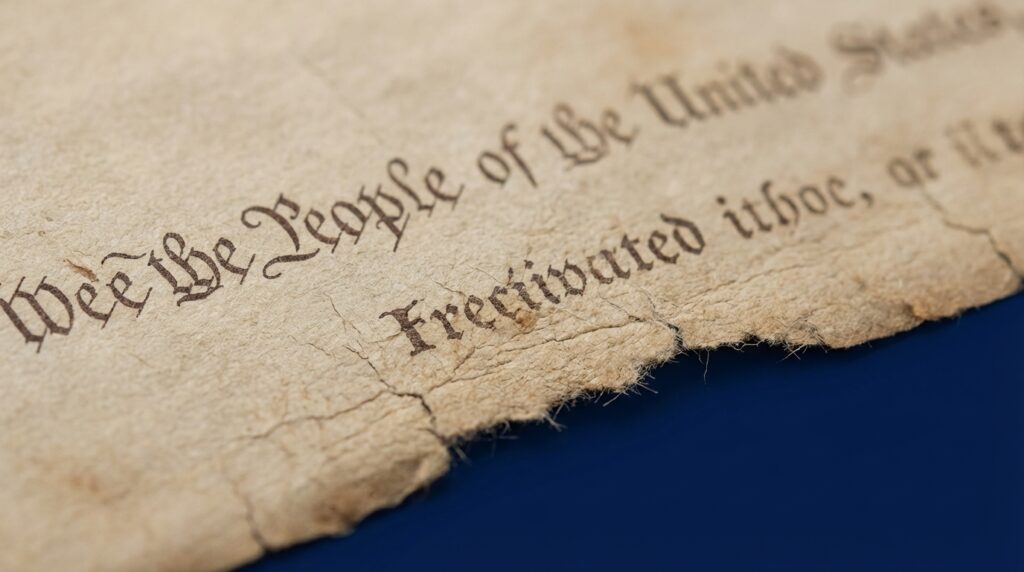 Wee the People of the United States,
Freciivated ithoc, or